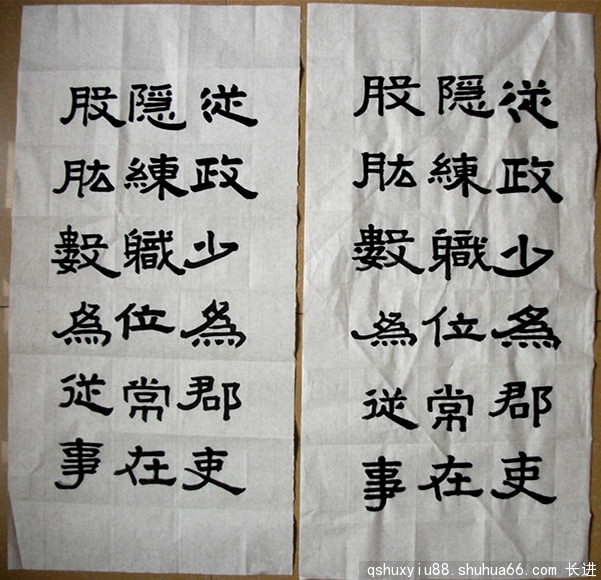 従政少為郡吏
隱練職位常在
股肱數為従事
従政少為郡吏
隱練職位常在
股肱數為従事
qshuxyiu88.shuhua66.com 长进